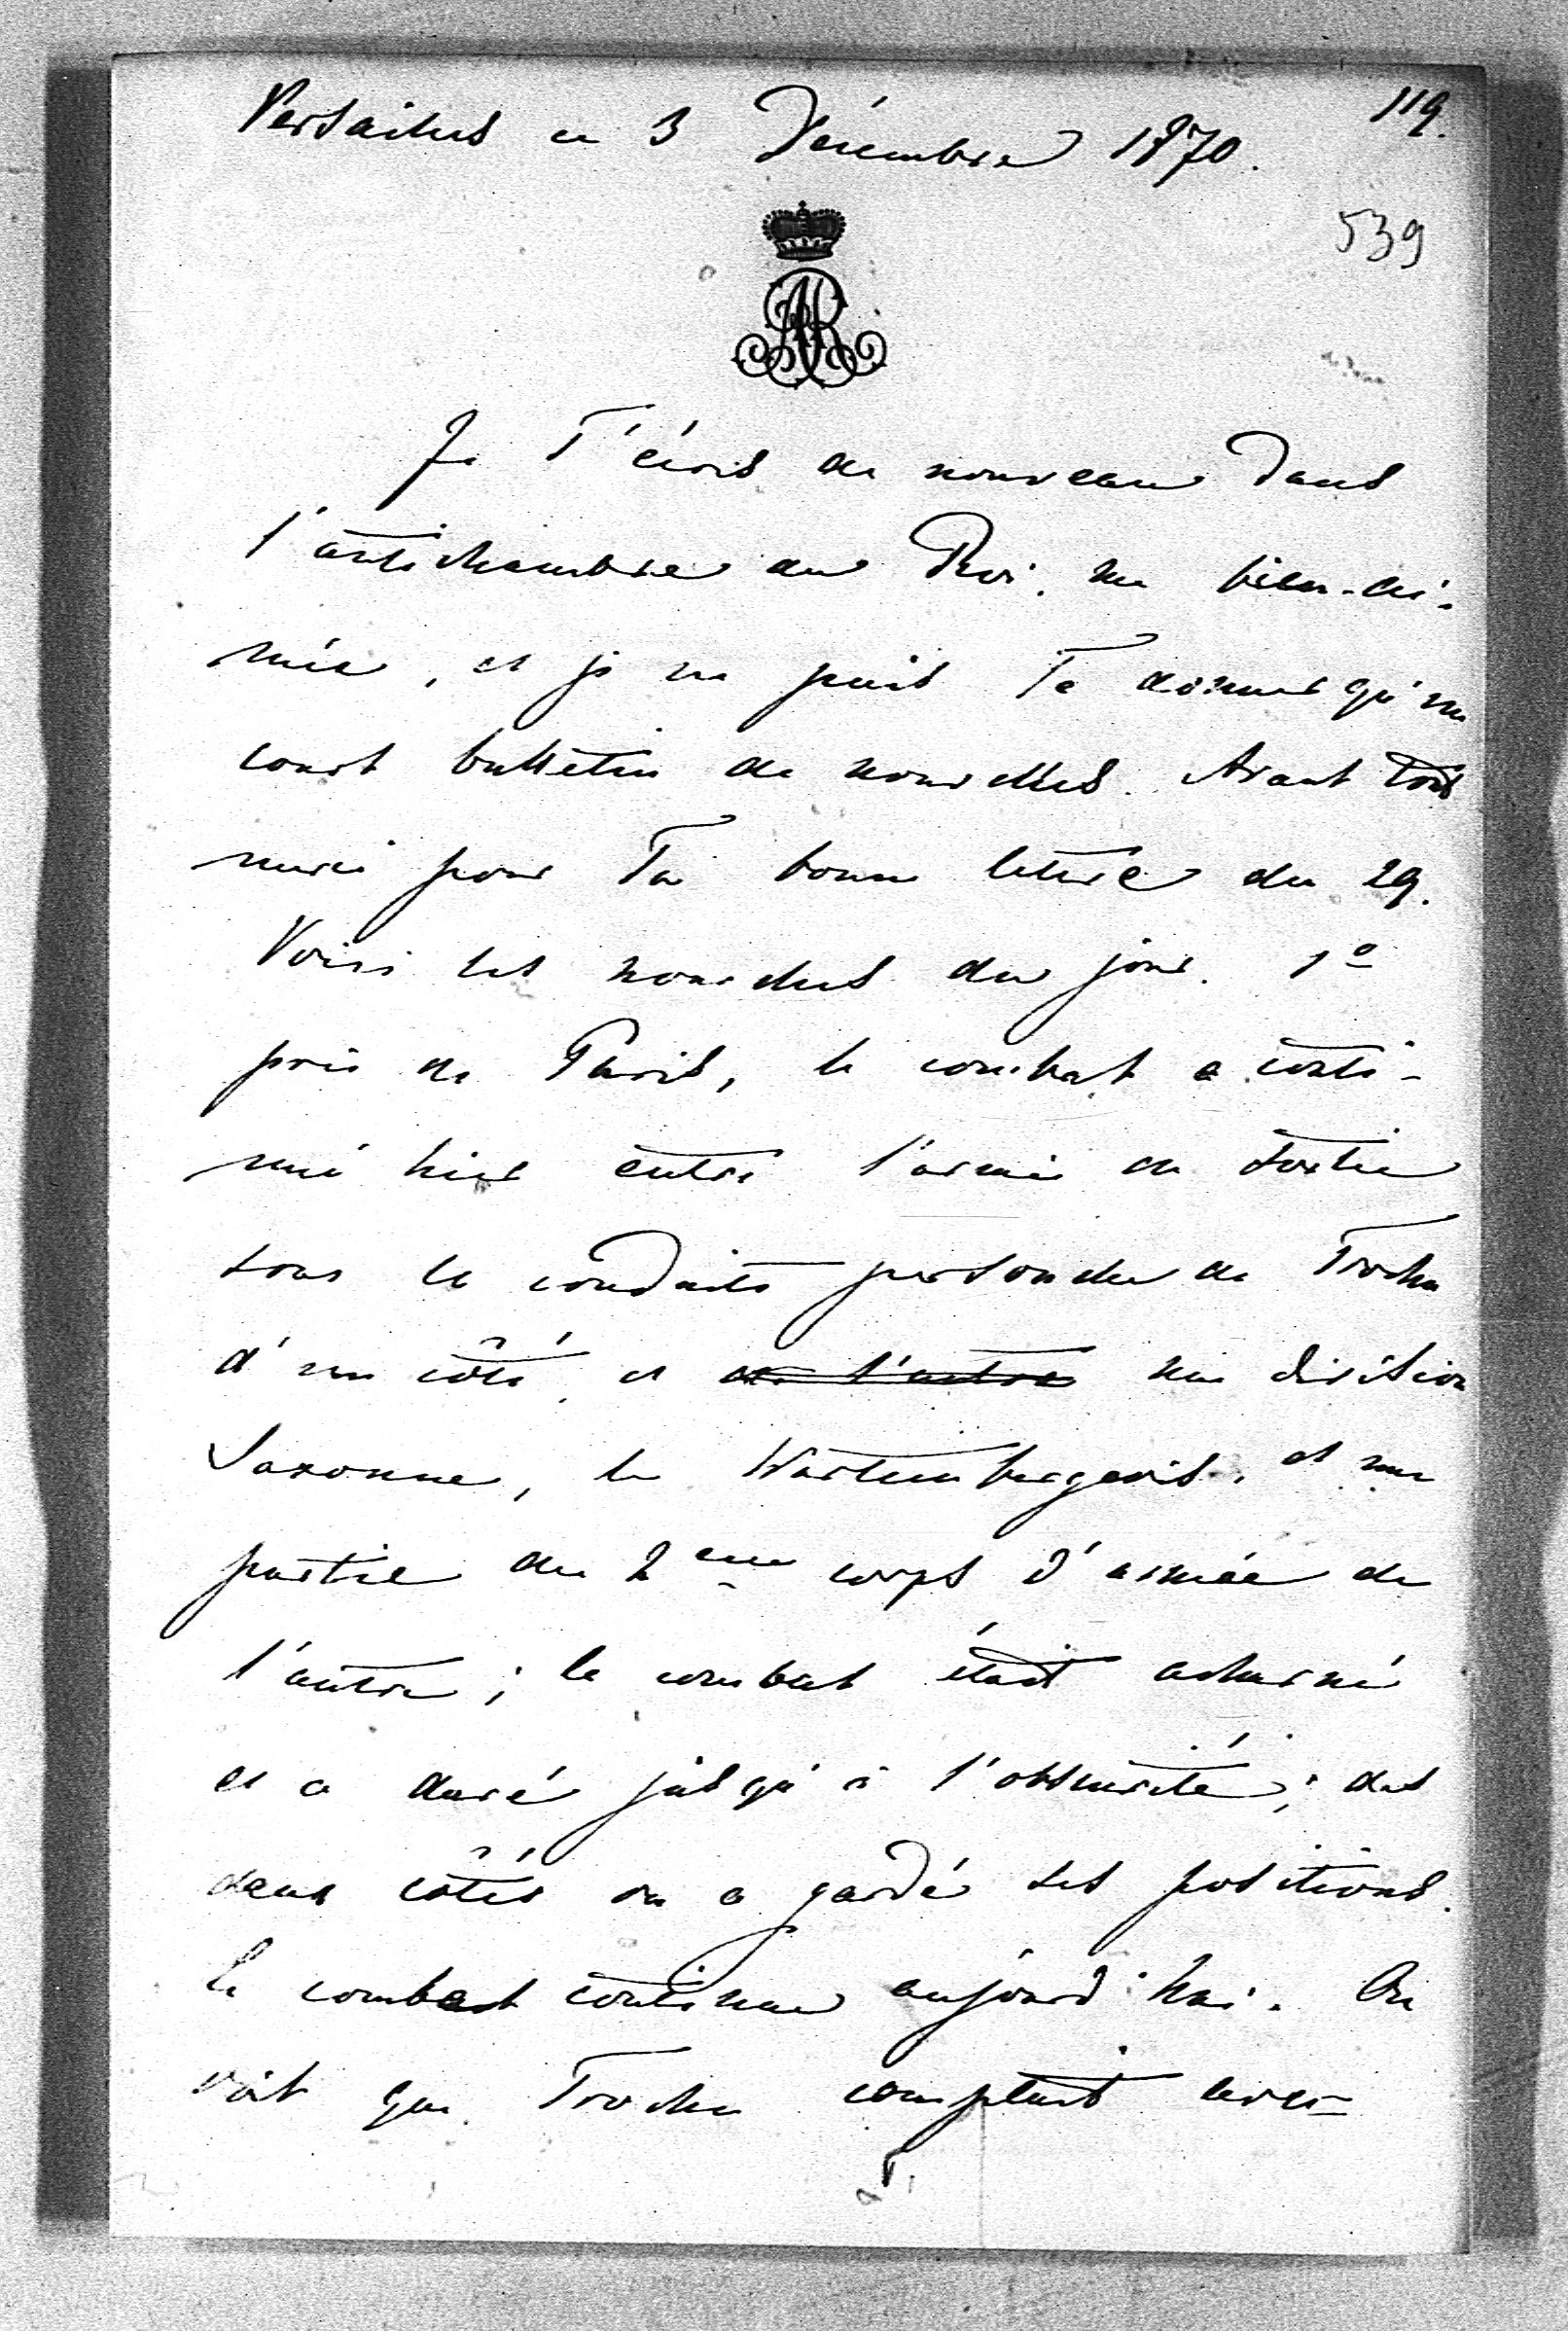 Versailles ce 3 Décembre 1870.
119.
539
AR
Je T'écris de nouveau dans
l'antichambre du Roi, ma bien-ai-
mée, et je ne puis Te donner qu'un
court bulletin de nouvelles. Avant tout
merci pour Ta bonne lettre du 29.
Voici les nouvelles du jour. 1º
près de Paris, le combat a conti-
nué hier entre l'armée de sortie
sous la conduite personelle de Trochu
d'un côté, et de l'autre une division
Saxonne, les Würtembergeois, et une
partie du 2eme corps d'armée de
l'autre; le combat était acharné
et a duré jusqu'à l'obscurité; des
deux côtés on a gardé ses positions.
Le combat continue aujourd'hui. On
voit que Trochu comptait avec